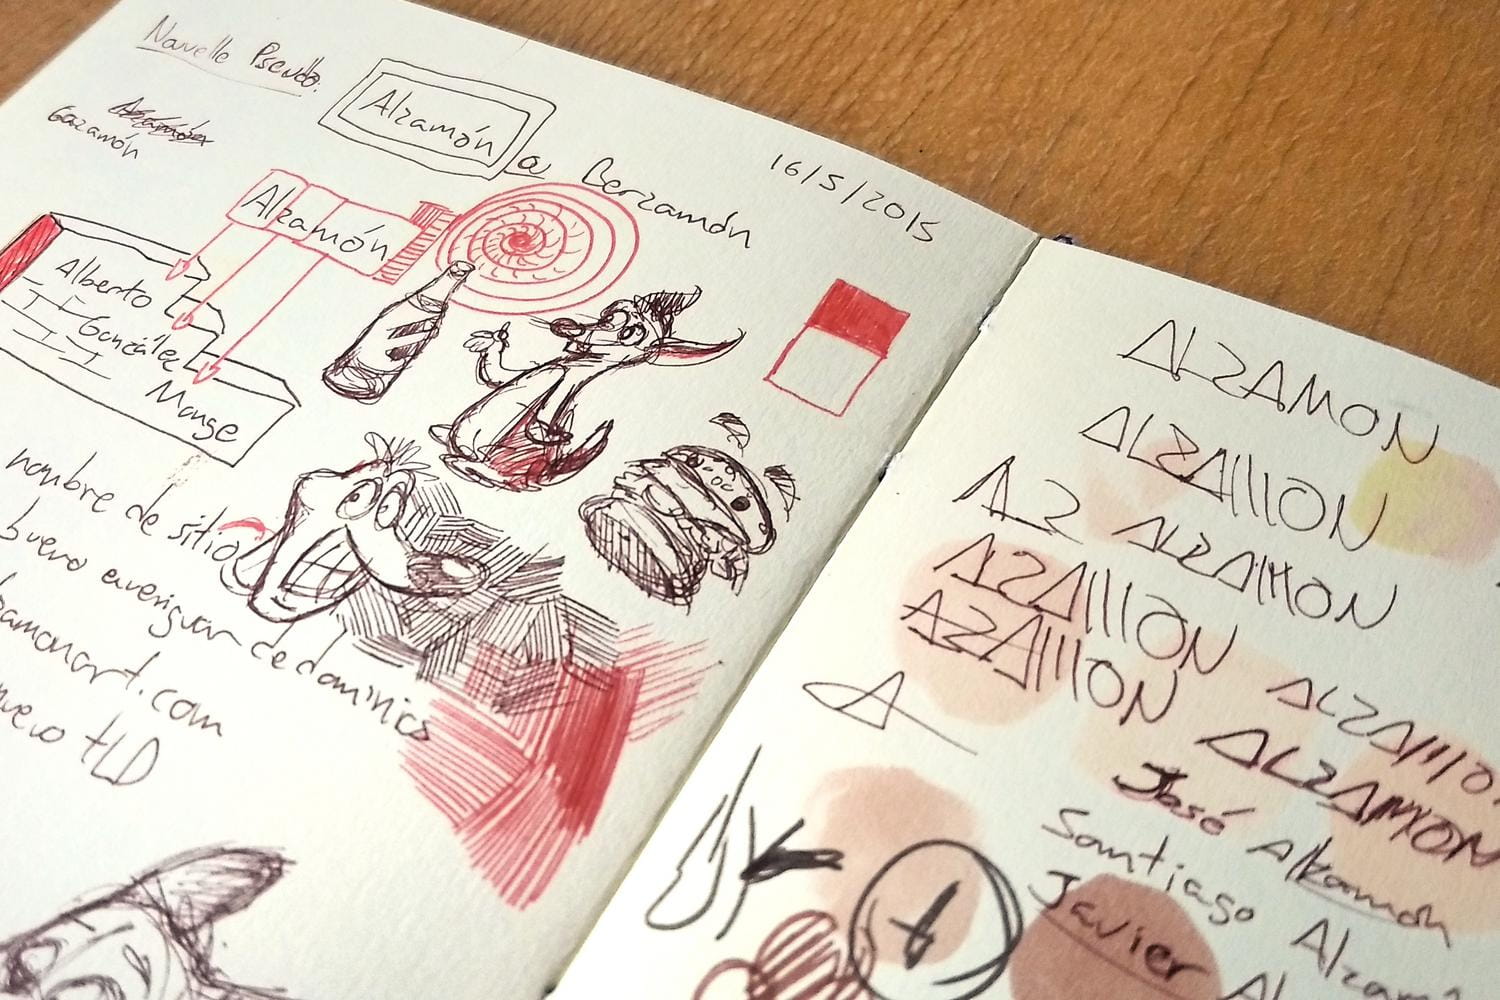 Nouvelle Pseudo.
Alzamón a Berzamón
16/5/2015
Gazamón
Alzamón
Alberto
González
Monge
nombre de sitio
bueno averiguar de dominios
zamonart.com
nuevo tLD
ALZAMON
ALZAMON
AZ ALZAMON
AZAMON
AZAMON
ALZAMO
A
ALZAMON
José Alzamón
Santiago Alzam
Javier Al